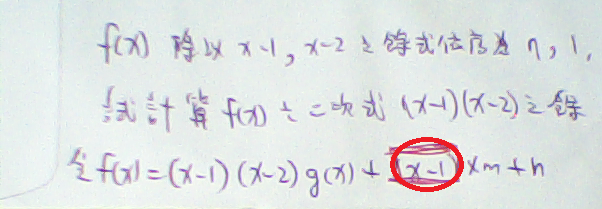 f(x) 除以 x-1, x-2 之餘式依序為 7, 1,
試計算 f(x) ÷ 二次式 (x-1)(x-2) 之餘
令 f(x) = (x-1)(x-2) g(x) + (x-1) × m + n